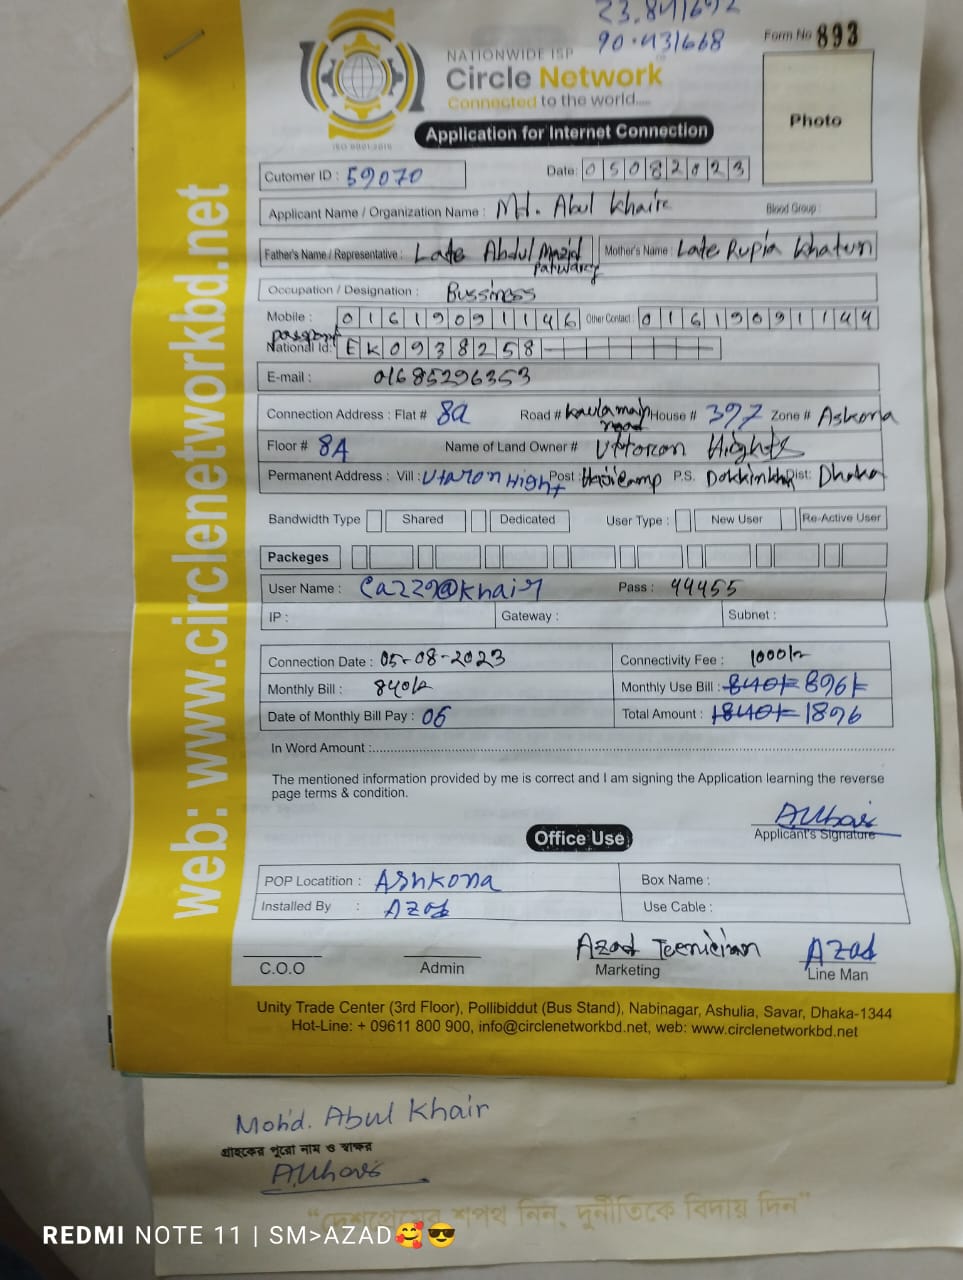 23.841692
90.431668
Form No 893
NATIONWIDE ISP
Circle Network
Connected to the world.....
ISO 9001:2015
Application for Internet Connection
Photo
Cutomer ID : 59070
Date: 05082023
Applicant Name / Organization Name : Md. Abul Khair
Blood Group :
Father's Name / Representative : Late Abdul Mazid Patwary
Mother's Name : Late Rupia Khatun
Occupation / Designation : Bussiness
Mobile : 01619091146 Other Contact : 01619091144
passport
National Id: EK0938258
E-mail : 01685296353
Connection Address : Flat # 8a Road # road House # 397 Zone # Askona
Floor # 8A Name of Land Owner # Uttoron Hights
Permanent Address : Vill : Utaron Hight Post : Hajicamp P.S. Dokkinkhan Dist: Dhaka
Bandwidth Type Shared Dedicated User Type : New User Re-Active User
Packeges
User Name : Ca229@khair Pass : 44455
IP : Gateway : Subnet :
Connection Date : 05-08-2023 Connectivity Fee : 1000/-
Monthly Bill : 840/- Monthly Use Bill : 840/- 896/-
Date of Monthly Bill Pay : 06 Total Amount : 1840/- 1896
In Word Amount :
The mentioned information provided by me is correct and I am signing the Application learning the reverse
page terms & condition.
Applicant's Signature
Office Use
POP Locatition : Ashkona Box Name :
Installed By : Azad Use Cable :
Azad Tecnician Azad
C.O.O Admin Marketing Line Man
Unity Trade Center (3rd Floor), Pollibiddut (Bus Stand), Nabinagar, Ashulia, Savar, Dhaka-1344
Hot-Line: + 09611 800 900, info@circlenetworkbd.net, web: www.circlenetworkbd.net
web: www.circlenetworkbd.net
Mohd. Abul Khair
গ্রাহকের পুরো নাম ও স্বাক্ষর
“দেশপ্রেমের শপথ নিন, দুর্নীতিকে বিদায় দিন”
REDMI NOTE 11 | SM>AZAD🥰😎